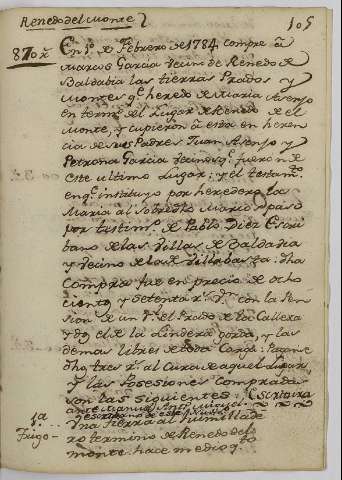 Renedo del monte
105
870 rs
En 1º de Febrero de 1784 compre â
Marcos Garcia vecino de Renedo de
Baldabia las tierras Prados y
Montes qe heredo de Maria Asenjo
en termo del Lugar de Renedo de el
monte, y cupieron â esta en heren
cia de sus Padres Juan Asenjo y
Petrona Garcia vecinos qe fueron de
este ultimo Lugar: y el testamto
en qe instituyo por heredero la
Maria al sobredho Marcos pasó
por testimo de Pablo Diez Escri
bano de las villas de Baldavia
y vecino de la de Villabasta: dha
Compra fue en precio de ocho
cientos y setenta rs vn con la Pen
sion de un rl el Prado de la Callexa
y dos el de la Lindera gorda, y las
demas libres de toda Carga: Paganse
dhos tres rs al Cura de aquel Lugar
y las Posesiones Compradas
son las siguientes: Escritura
ante Manuel Antº
escribano de esta
1a
Una tierra al humillade
Trigo
ro termino de Renedo del
monte. hace medio qto